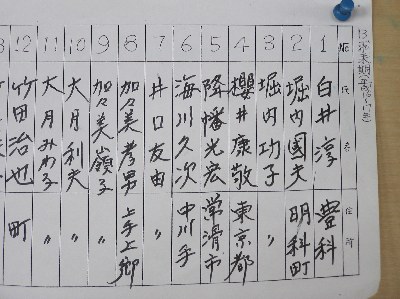 NO. 氏名 住所
1 臼井 淳 豊科
2 堀内國夫 明科町
3 堀内功子 〃
4 櫻井康敬 東京都
5 降幡光宏 常滑市
6 海川久次 中川手
7 井口友由 〃
8 加々美孝男 上手上郷
9 加々美嶺子 〃
10 大月利夫 〃
11 大月みわ子 〃
12 竹田治也 町